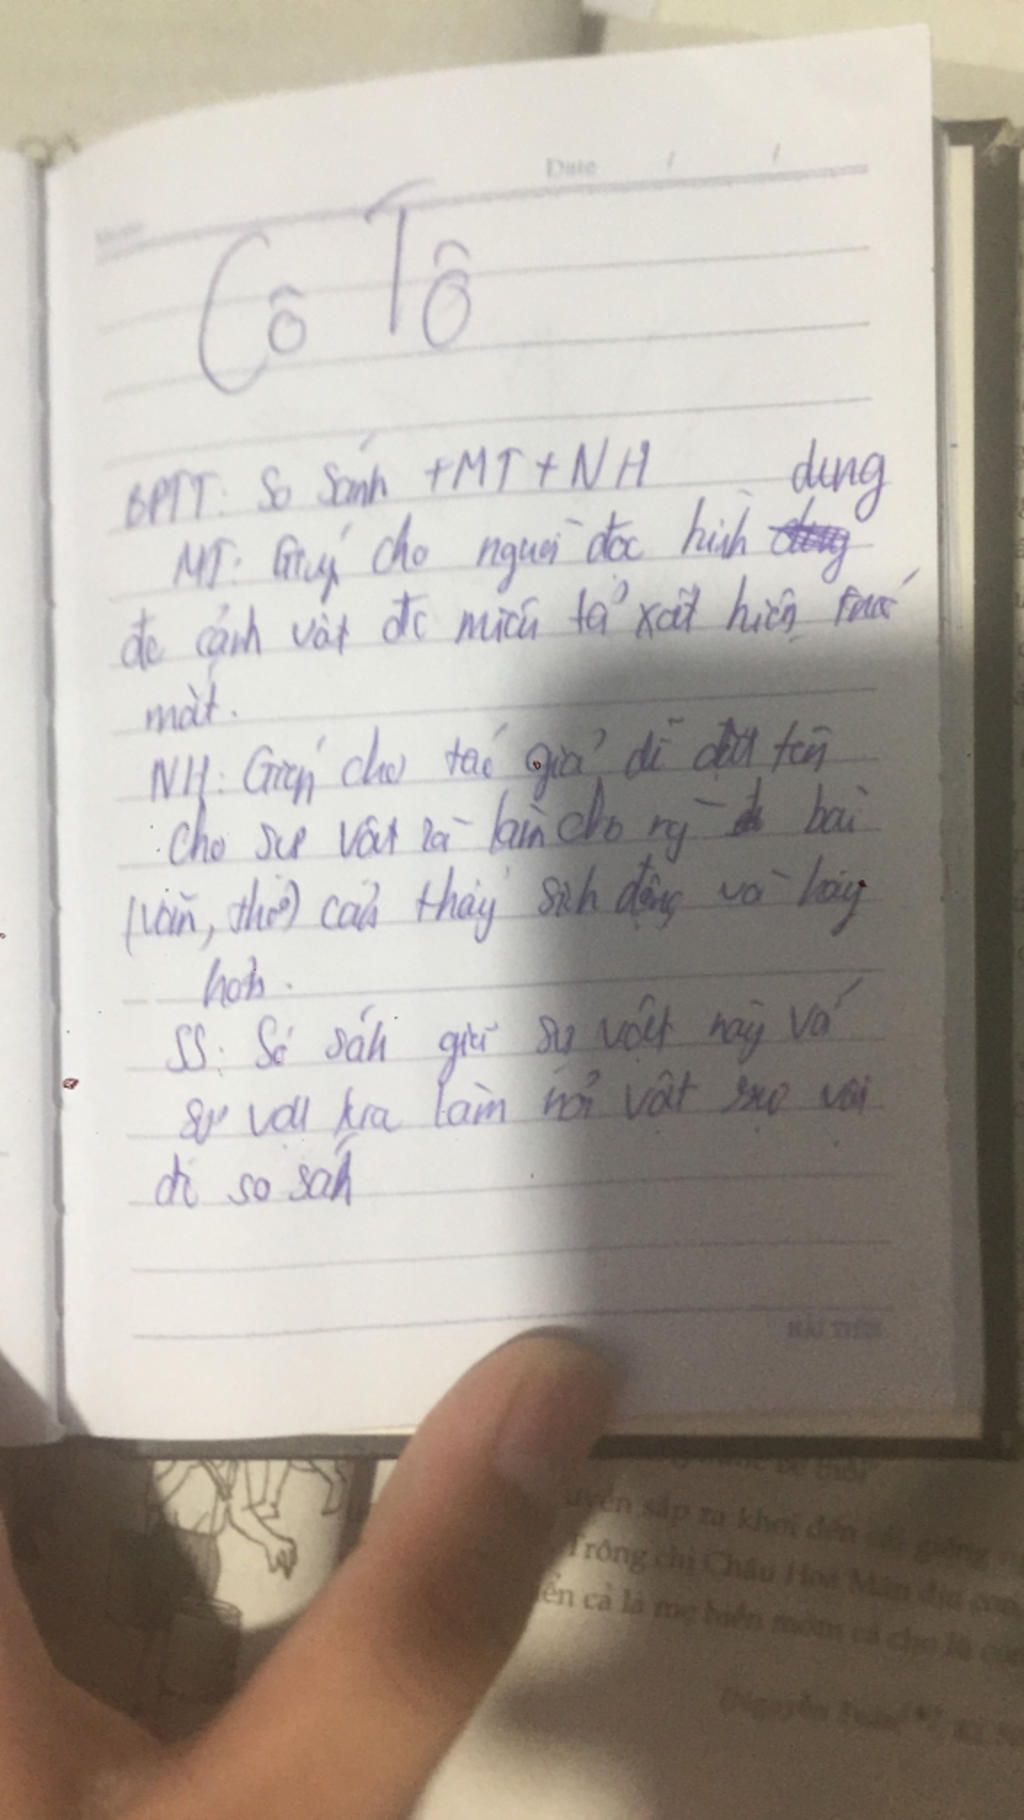 Date / /
Cô Tô
BPTT: So sánh +MT+NH
dung
MT: Giúp cho người đọc hình
đc cảnh vật đc miêu tả xuất hiện trước
mắt.
NH: Giúp cho tác giả dễ đặt tên
cho sự vật và làm cho ng bài
(văn, thơ) cảm thấy sinh động và hay
hơn.
SS: So sánh giữ sự vật này vớ
sự vật kia làm nổi vật sự vật
đc so sánh
HẢI TIẾN
sắp ra khơi đến cái giếng
Trông chị Châu Hoà Mãn địu con
cả là mẹ hiền mớm cá cho lũ
(Nguyễn Tuân